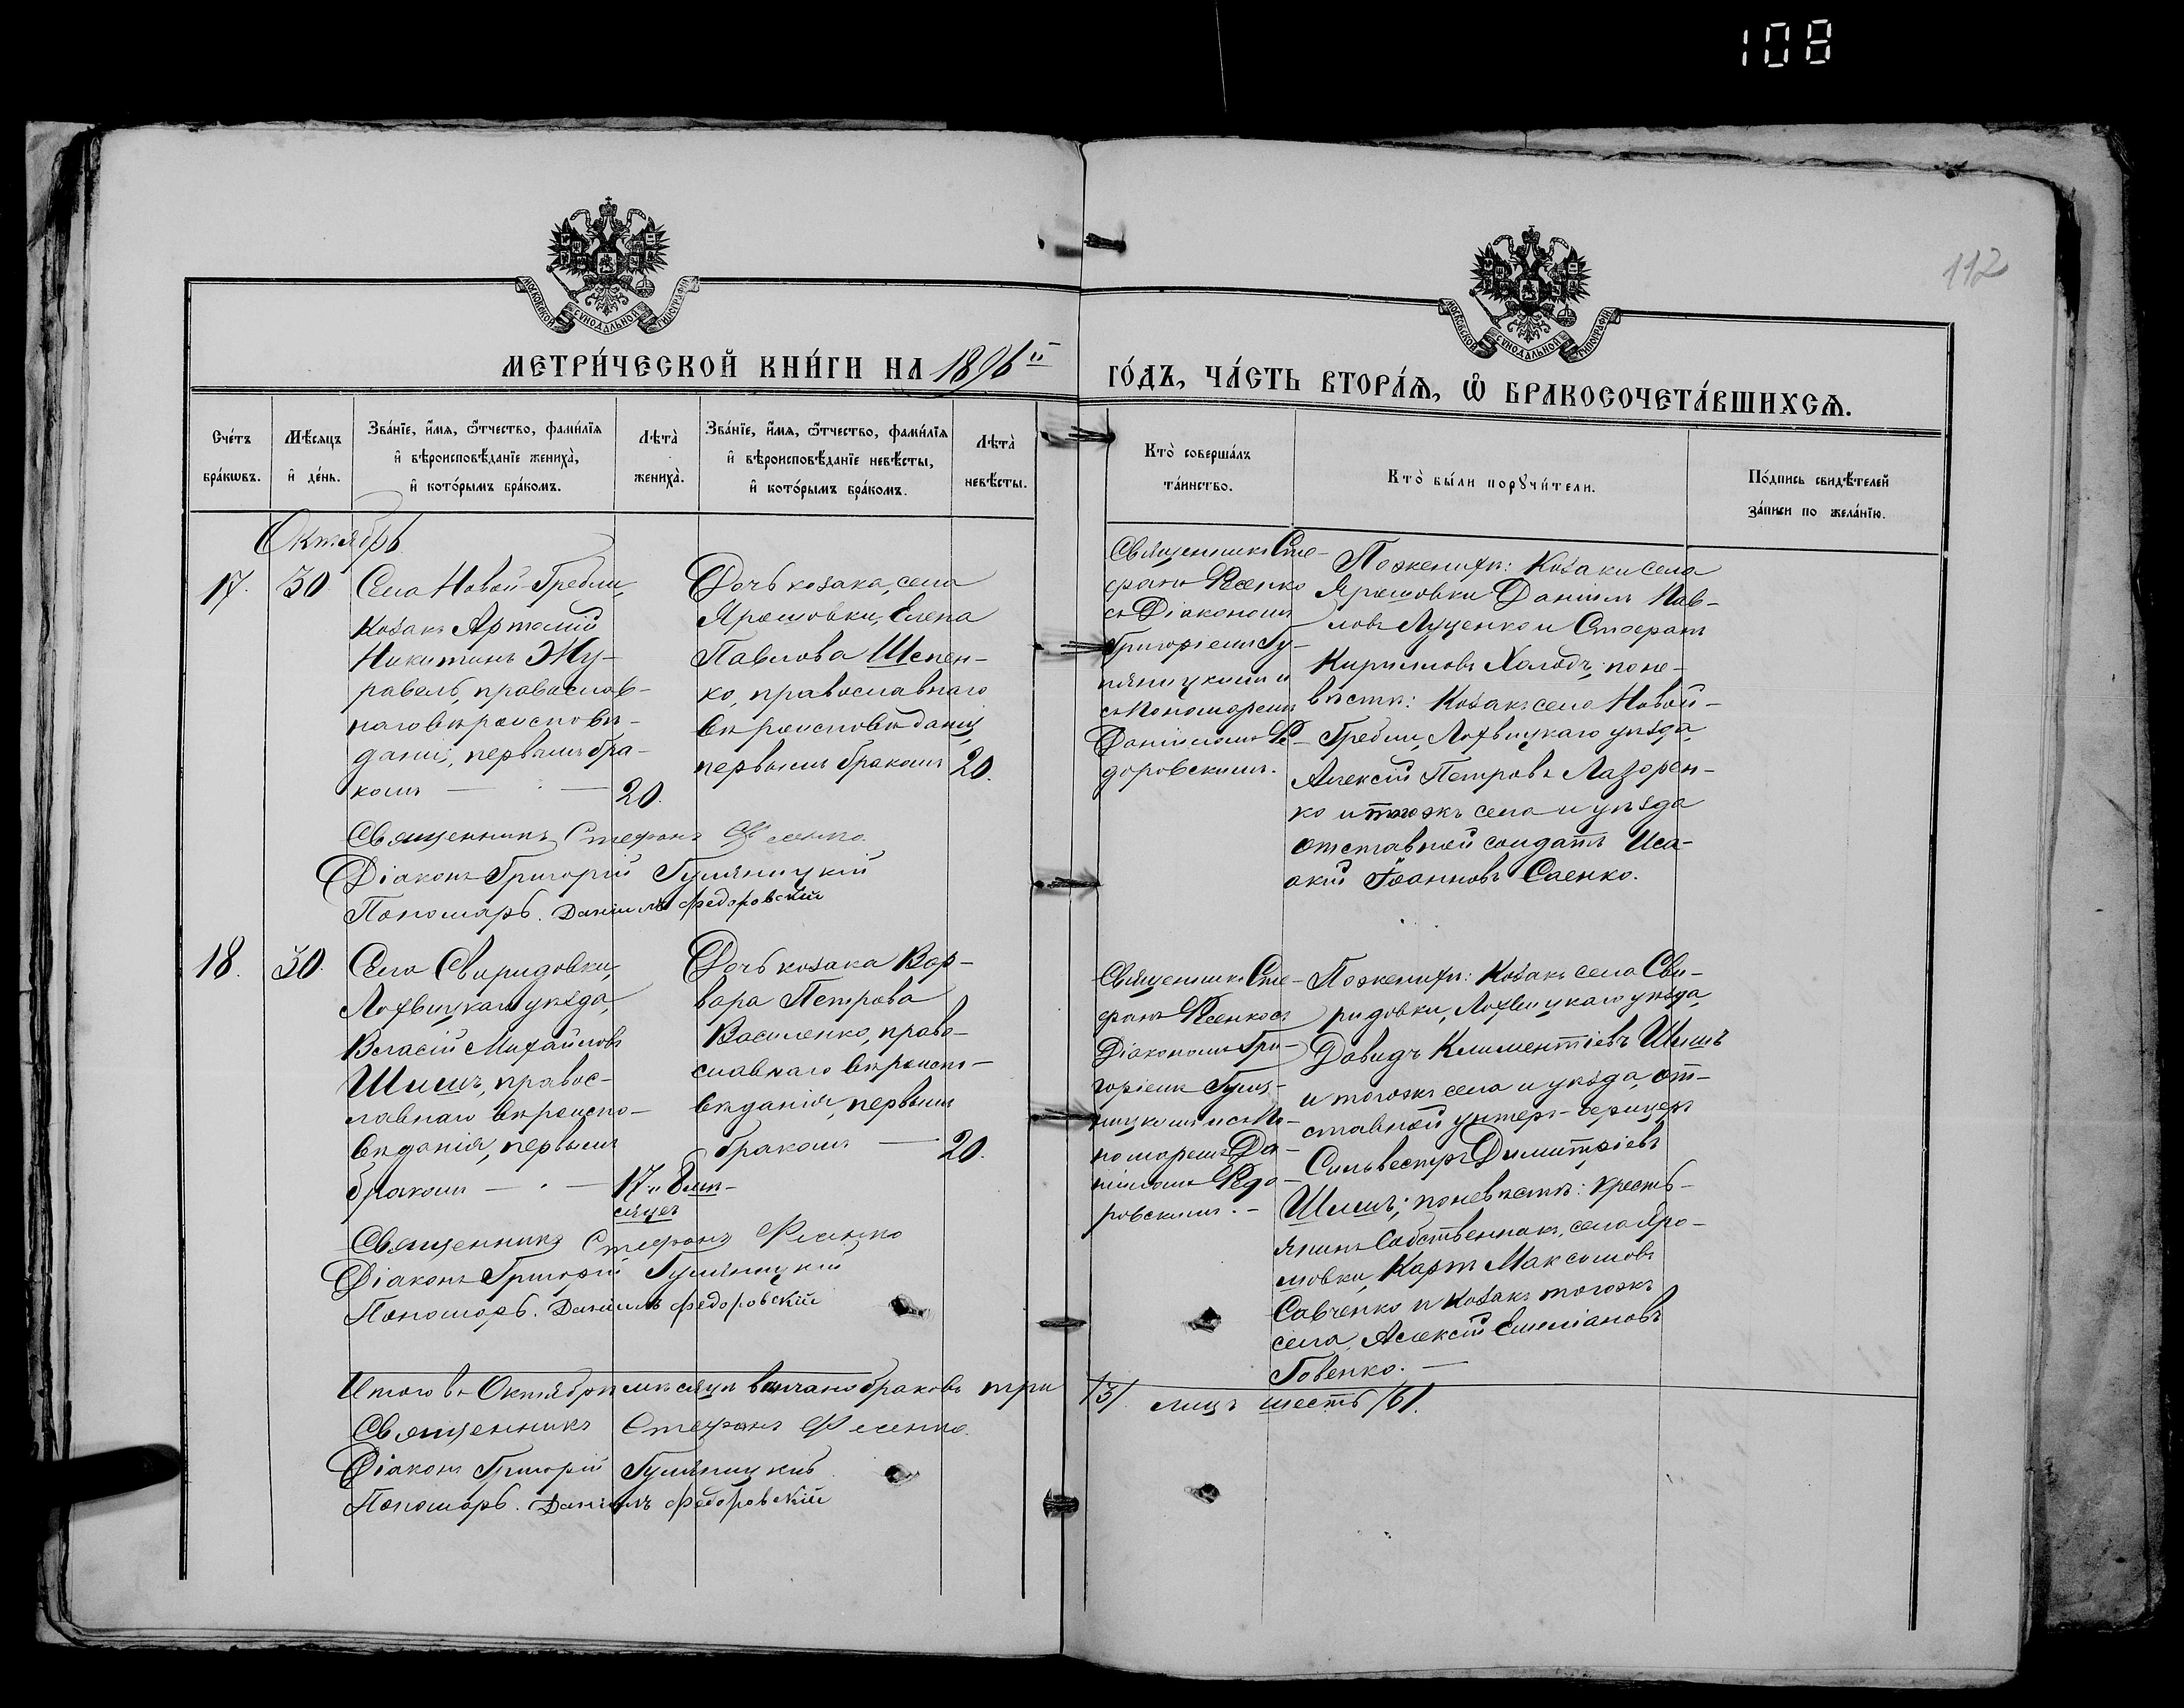 108
112
МОСКОВСКОЙ СѴНОДАЛЬНОЙ ТИПОГРАФІИ
МОСКОВСКОЙ СѴНОДАЛЬНОЙ ТИПОГРАФІИ
МЕТРИ́ЧЕСКОЙ КНИ́ГИ НА 1896й
ГО́ДЪ, ЧА́СТЬ ВТОРА́Ѧ, Ѽ БРАКОСОЧЕТА́ВШИХСѦ.
Сче́тъ
бра́кѡвъ.
Мѣ́сѧцъ
и҆ де́нь.
Зва́нїе, и҆́мѧ, ѻ҆́тчество, фами́лїѧ
и҆ вѣроисповѣ́данїе жениха̀,
и҆ кото́рымъ бра́комъ.
Лѣта̀
жениха̀.
Зва́нїе, и҆́мѧ, ѻ҆́тчество, фами́лїѧ
и҆ вѣроисповѣ́данїе невѣ́сты,
и҆ кото́рымъ бра́комъ.
Лѣта̀
невѣ́сты.
Кто̀ соверша́лъ
та́инство.
Кто̀ бы́ли порꙋчи́тели.
По́дпись свидѣ́телей
за́писи по жела́нїю.
Октябрь
17. 30.
Села Новой-Гребли,
козакъ Артемій
Никитинъ Жу-
равель, православ-
наго вѣроисповѣ-
данія, первымъ бра-
комъ — 20.
Дочь козака, села
Ярошовки, Елена
Павлова Шепен-
ко, православнаго
вѣроисповѣданія,
первымъ бракомъ 20.
Священникъ Сте-
фанъ Ѳесенко
съ Діакономъ
Григоріемъ Гу-
ляницкимъ и
съ Пономаремъ
Даніиломъ Ѳе-
доровскимъ.
По женихѣ: Козаки села
Ярошовки Даніилъ Пав-
ловъ Луценко и Стефанъ
Кирилловъ Холодъ; по не-
вѣстѣ: Козакъ села Новой-
Гребли, Лохвицкаго уѣзда,
Алексій Петровъ Лазорен-
ко и тогожъ села и уѣзда
отставной солдатъ Иса-
акій Іоанновъ Саенко.
Священникъ Стефанъ Ѳесенко.
Діаконъ Григорій Гуляницкій
Пономарь. Даніилъ Федоровскій
18. 30.
Села Свиридовки,
Лохвицкаго уѣзда,
Власій Михайловъ
Шишъ, правос-
лавнаго вѣроиспо-
вѣданія, первымъ
бракомъ — 17 и 8 мѣ-
сяцев
Дочь козака Вар-
вара Петрова
Василенко, право-
славнаго вѣроиспо-
вѣданія, первымъ
бракомъ — 20.
Священникъ Сте-
фанъ Ѳесенко съ
Діакономъ Гри-
горіемъ Гуля-
ницкимъ и съ По-
номаремъ Да-
ніиломъ Ѳедо-
ровскимъ. —
По женихѣ: Козакъ села Сви-
ридовки, Лохвицкаго уѣзда,
Давидъ Климентіевъ Шишъ
и тогожъ села и уѣзда, от-
ставной унтеръ-офицеръ
Сильвестръ Димитріевъ
Шишъ; по невѣстѣ: кресть-
янинъ собственникъ, села Яро-
шовки, Карпъ Максимовъ
Савченко и козакъ тогожъ
села, Алексій Емеліановъ
Говенко. —
Священникъ Стефанъ Ѳесенко
Діаконъ Григорій Гуляницкій
Пономарь. Даніилъ Федоровскій
Итого въ Октябрѣ мѣсяцѣ вѣнчано браковъ три /3/. лицъ шесть /6/.
Священникъ Стефанъ Ѳесенко.
Діаконъ Григорій Гуляницкій
Пономарь. Даніилъ Федоровскій